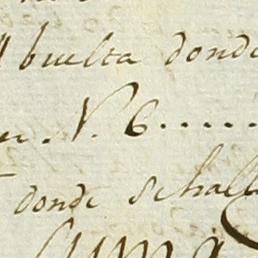 buelta donde
N. 6......
donde se halla
suma